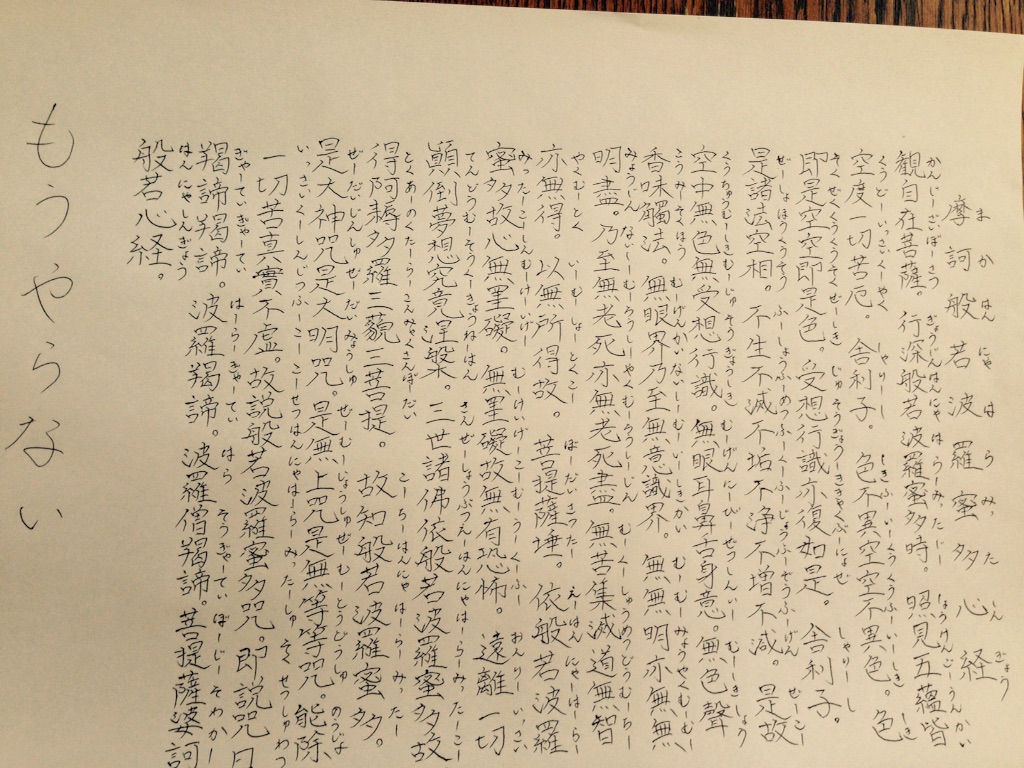 摩訶般若波羅蜜多心経
観自在菩薩。行深般若波羅蜜多時。照見五蘊皆
空度一切苦厄。舎利子。色不異空空不異色。色
即是空空即是色。受想行識亦復如是。舎利子。
是諸法空相。不生不滅不垢不浄不増不減。是故
空中無色無受想行識。無眼耳鼻舌身意。無色聲
香味觸法。無眼界乃至無意識界。無無明亦無無
明盡。乃至無老死亦無老死盡。無苦集滅道無智
亦無得。以無所得故。菩提薩埵。依般若波羅
蜜多故心無罣礙。無罣礙故無有恐怖。遠離一切
顛倒夢想究竟涅槃。三世諸佛依般若波羅蜜多故
得阿耨多羅三藐三菩提。故知般若波羅蜜多。
是大神咒是大明咒。是無上咒是無等等咒。能除
一切苦真實不虚。故説般若波羅蜜多咒。即説咒曰
羯諦羯諦。波羅羯諦。波羅僧羯諦。菩提薩婆訶
般若心経。
もうやらない